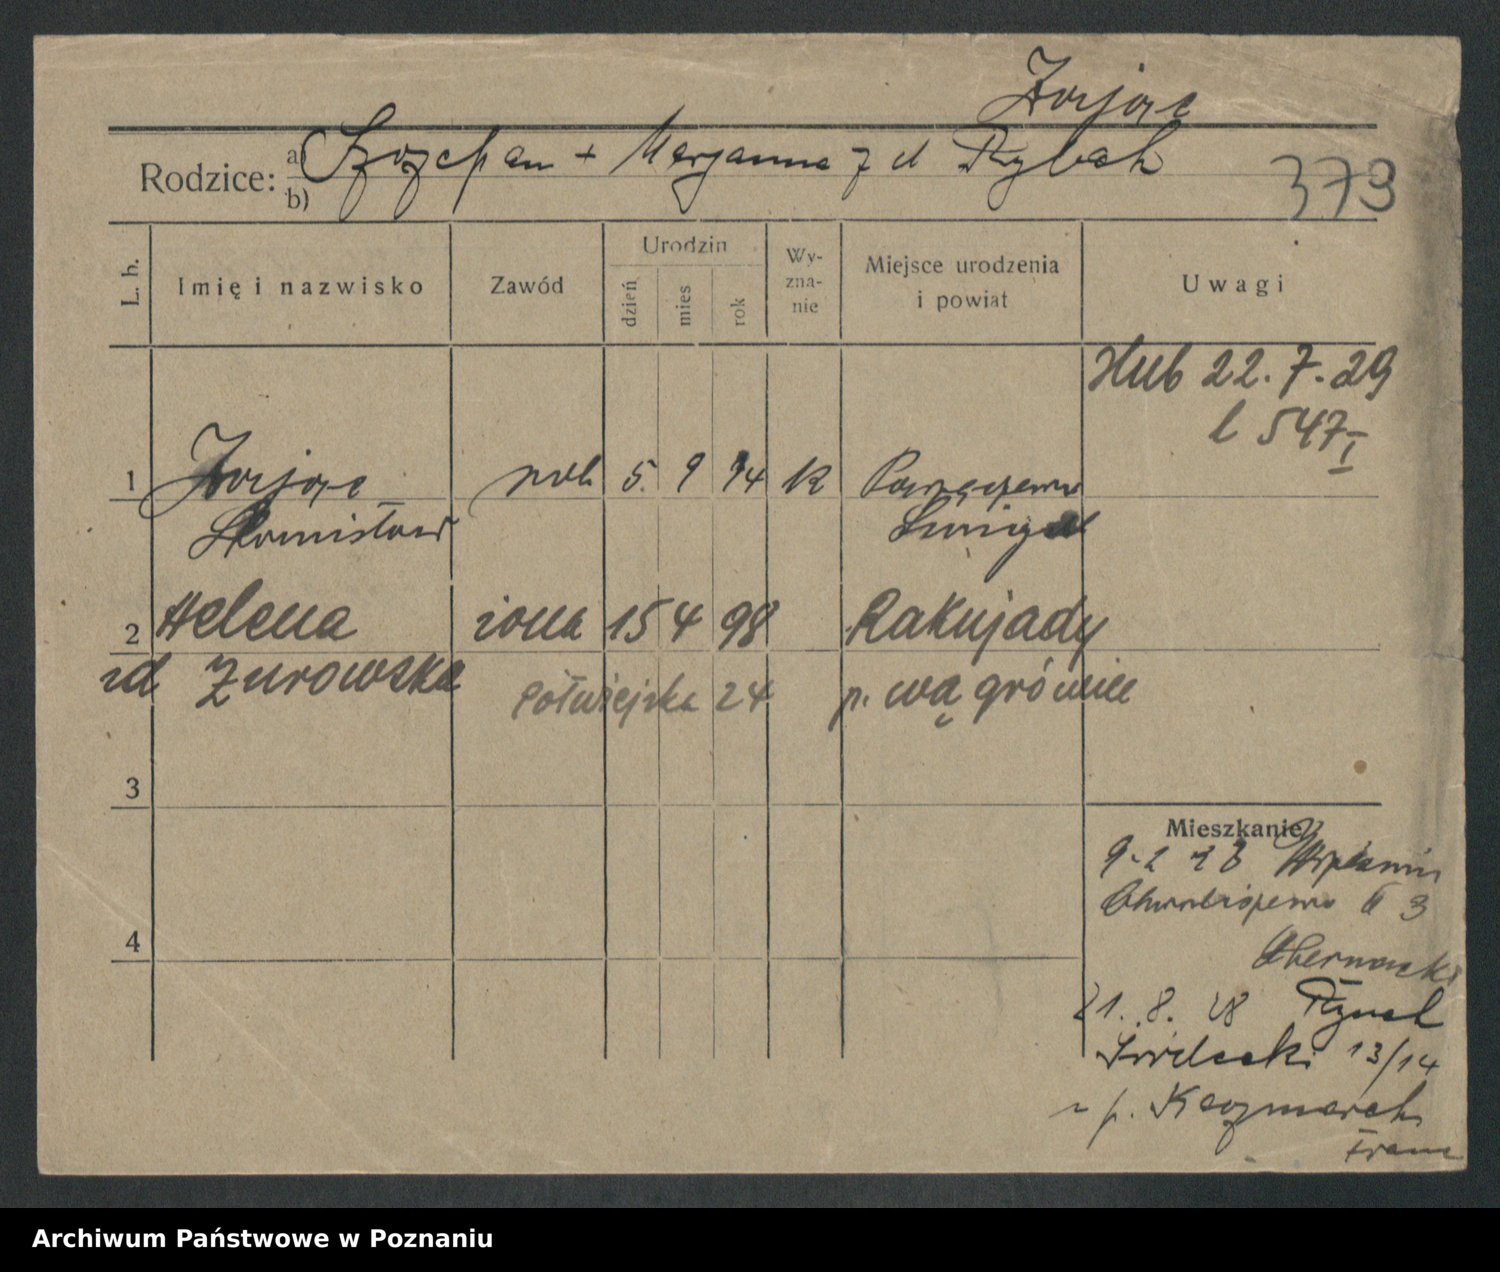 Zając
Rodzice: a) Szczepan + Marjanna z d Rybak
b)
373
L. b.
Imię i nazwisko
Zawód
Urodzin
dzień
mies
rok
Wy-
zna-
nie
Miejsce urodzenia
i powiat
Uwagi
Ślub 22.7.29
l 547 I
1 Zając rob 5. 9 94 k
Stanisław Śmigiel
2 Helena żona 15 4 98 Rakujady
zd Żurowska p. wągrówiec
Półwiejska 24
3
4
Mieszkanie
9.2 28
3
21.8.28 Rynek
Śródecki 13/14
p. Kaczmarek
Franc
Archiwum Państwowe w Poznaniu